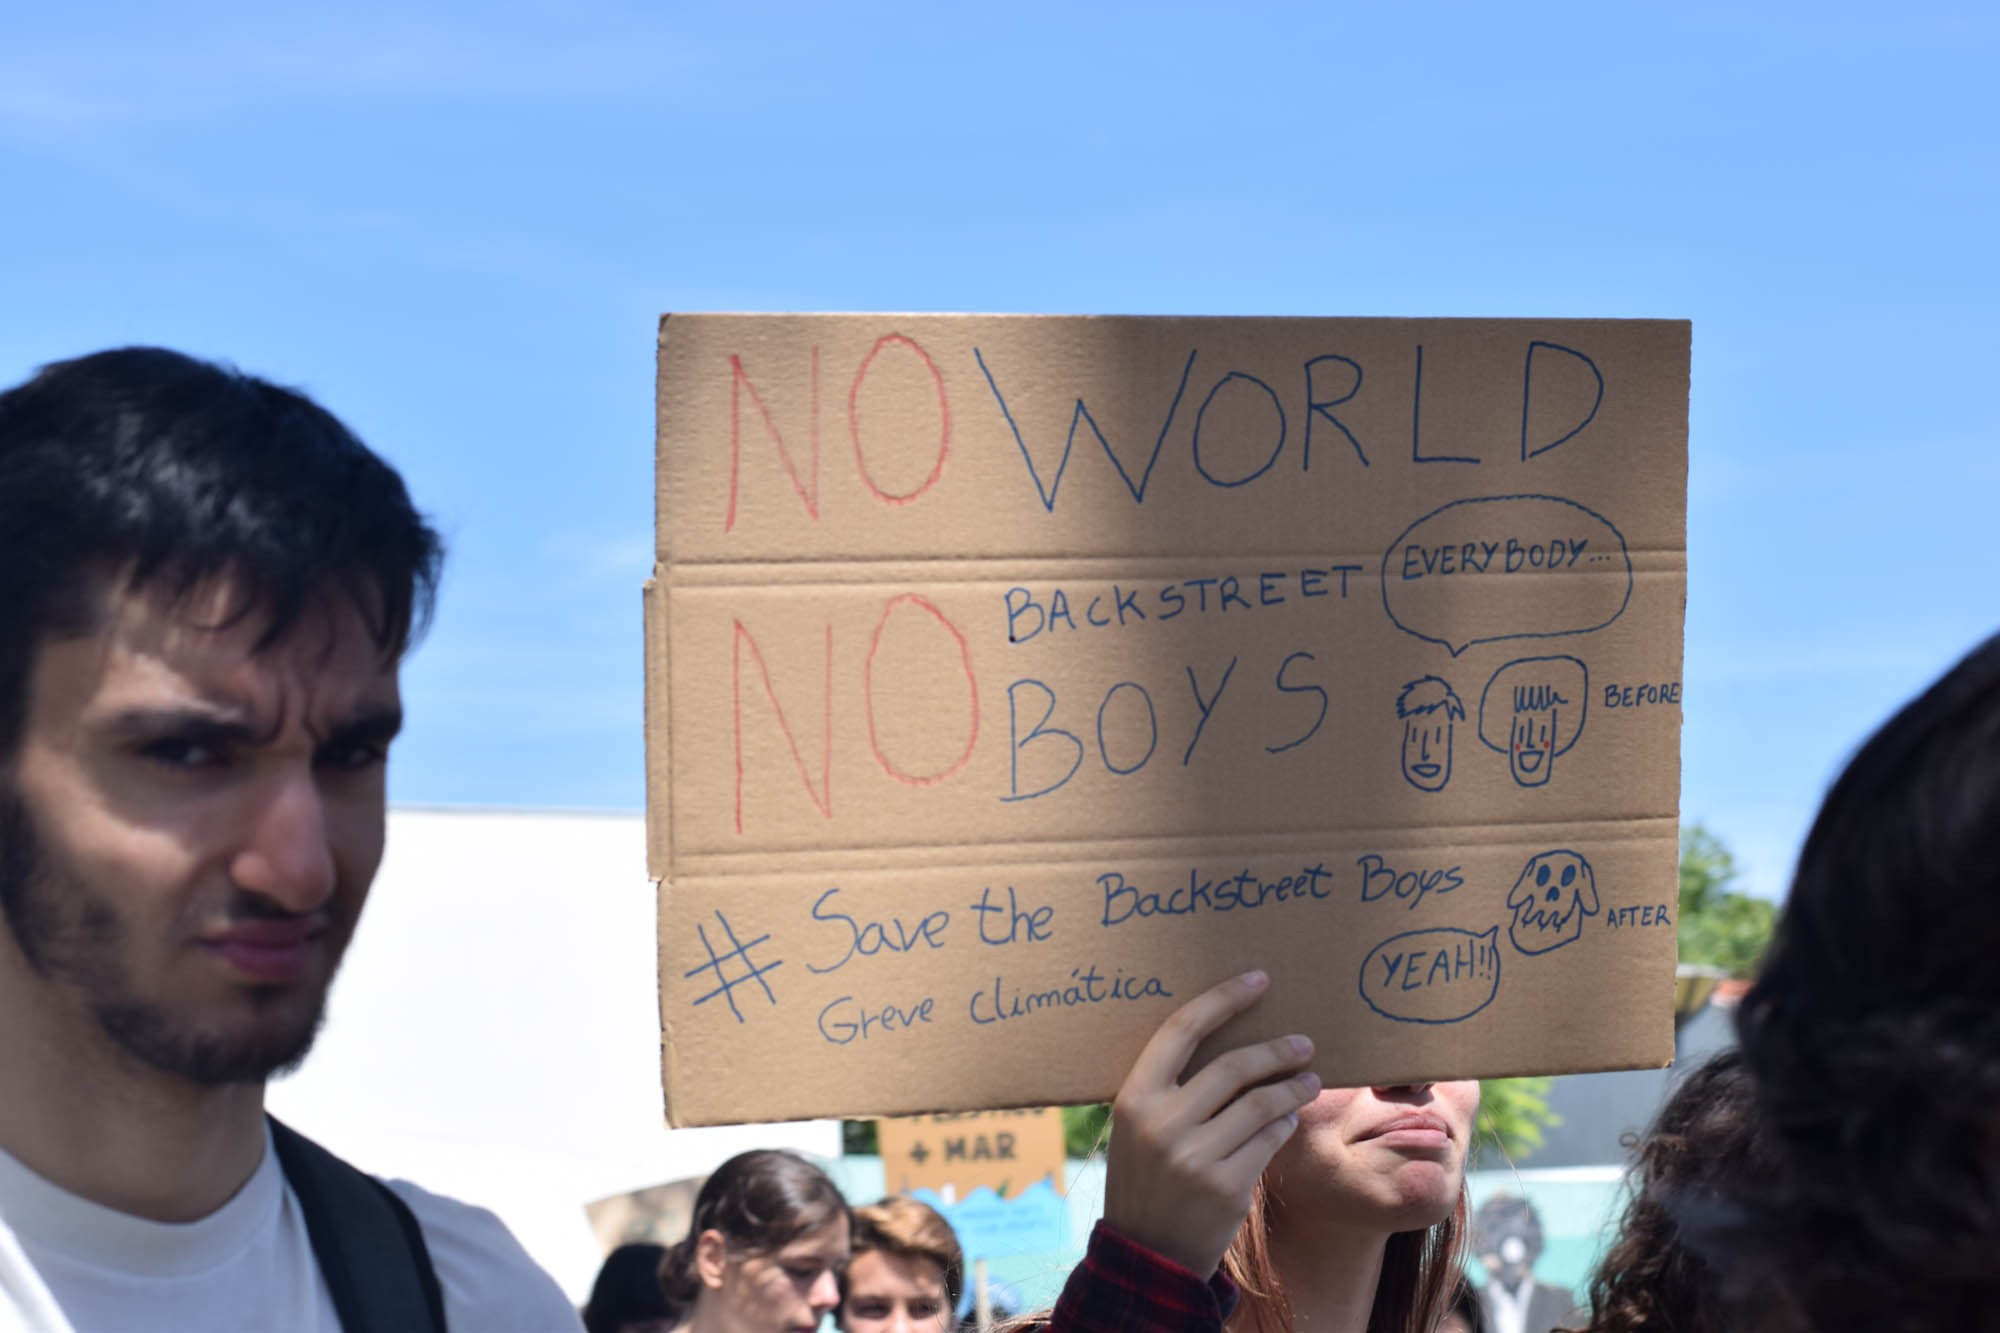 NO WORLD
NO BACKSTREET
BOYS
EVERYBODY...
BEFORE
# Save the Backstreet Boys
Greve climática
AFTER
YEAH!!
+ MAR